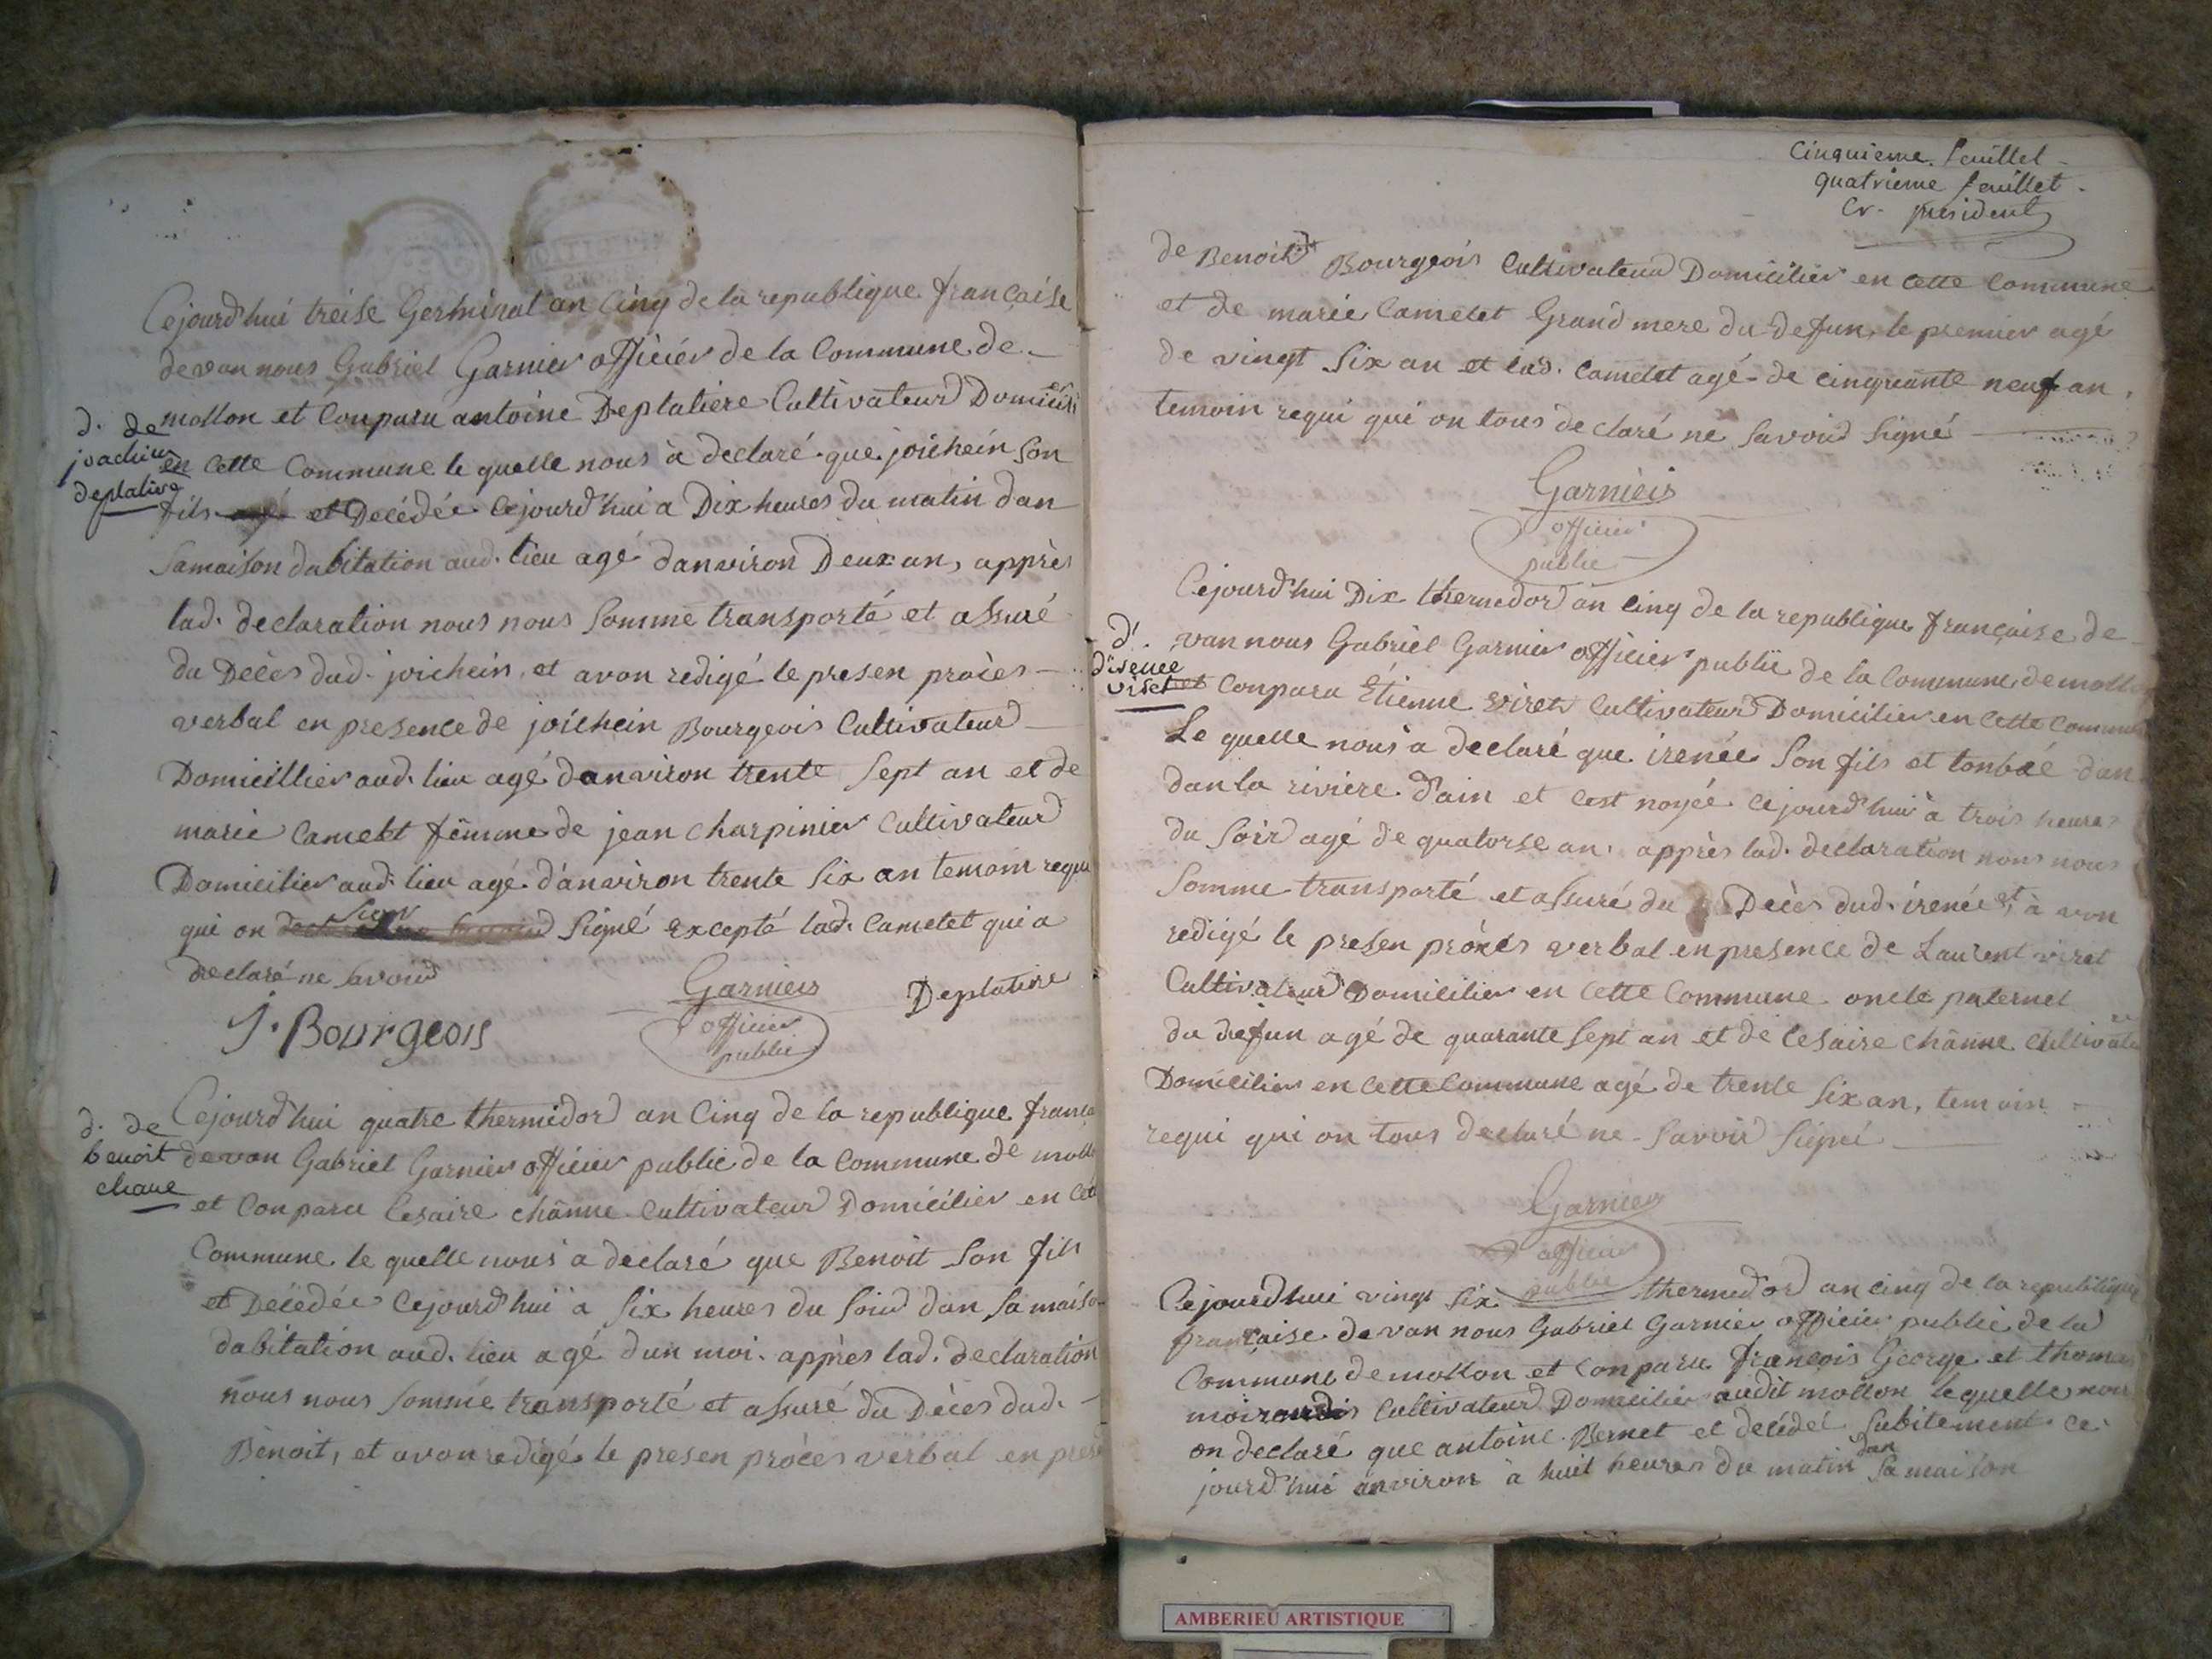 Cejourd'hui treise Germinal an Cinq de la republique française
devan nous Gabriel Garnier officiér de la Commune de
d. de
joachim
deplative
mollon et Conparu antoine Deplatiere Cultivateur Domicili
en Cette Commune le quelle nous à declaré que joichein son
fils et Decédée Cejourd'hui a Dix heures du matin dan
Samaison dabitation aud. lieu agé danviron Deux an, apprès
lad. declaration nous nous Somme transporté et assuré
du Decès dud. joichein, et avon redigé le presen procès
verbal en presence de joichein Bourgeois Cultivateur
Domicillier aud. lieu agé danviron trente Sept an et de
marie Camelet fémme de jean Charpinier Cultivateur
Domicilier aud. lieu agé d'anviron trente Six an temoin requi
qui on Signé Excepté lad. Camelet qui a
declaré ne Savoird
Garnieis
officier
public
Deplatire
J. Bourgeois
d. de
benoit
chane
Cejourd'hui quatre thermidor an Cinq de la republique franca
devan Gabriel Garnier officier public de la Commune de moll
et Conparu Cesaire chânne Cultivateur Domicilier en Cet
Commune le quelle nous a declaré que Benoit Son fils
et Decédée Cejourd'hui a Six heures du Soird dan Sa maiso
dabitation aud. lieu agé dun moi. apprès lad. declaration
nous nous Somme transporté et assuré du Decès dud.
Benoit, et avon redigé le presen procès verbal en pres
Cinquieme feuillet
quatrieme feuillet
president
de Benoit Bourgeois Cultivateur Domicilier en Cette Commune
et de marie Camelet Grand mere du defun, le premier agé
de vingt Six an et lad. Camelet agé de Cinquante neuf an,
temoin requi qui on tous declaré ne Savoird Signé
Garnieis
officier
public
Cejourd'hui Dix thermedor an Cinq de la republique française de
d'irenee
viret
van nous Gabriel Garnier officier public de la Commune de mollon
et Conparu Étienne viret Cultivateur Domicilier en Cette Commun
Le quelle nous a declaré que irenée Son fils et tonbée dan
dan la riviere d'ain et C'est noyée Cejourd'hui à trois heures
du Soir agé de quatorse an. apprès lad. declaration nous nous
Somme transporté et assuré du Decès dud. irenée et à von
redigé le presen procès verbal en presence de Laurent viret
Cultivateur Domicilier en Cette Commune oncle paternel
du defun agé de quarante Sept an et de Cesaire chânne Cultivat
Domicilier en Cette Commune agé de trente Six an, temoin
requi qui on tous declaré ne Savoird Signé
Garnieis
officier
public
Cejourdhui vingt Six thermedor an cinq de la republique
française devan nous Gabriel Garnier officier public de la
Commune de mollon et Conparu françois George et thomas
Cultivateur Domicilier audit mollon lequelle nous
on declaré que antoine Bernet et decédé Subitement Ce
jourd'hui anviron à huit heures du matin dan Sa maison
AMBERIEU ARTISTIQUE